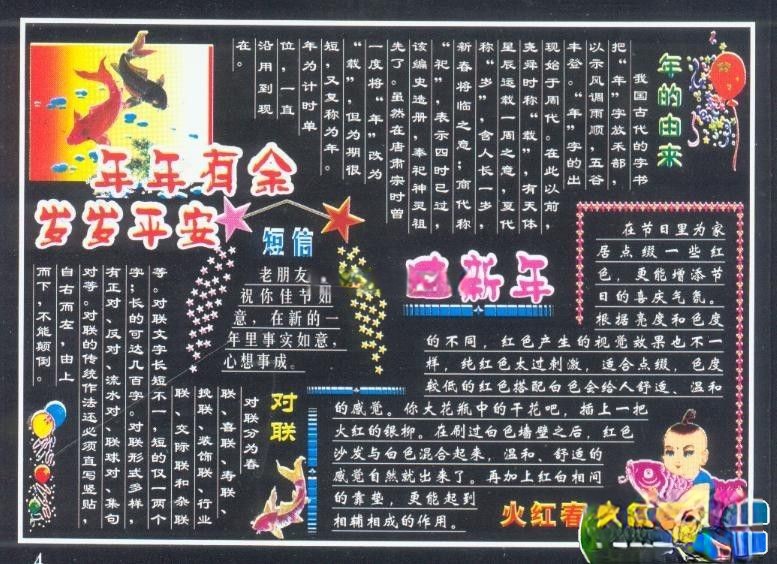 年的由来
我国古代的字书
把“年”字放禾部，
以示风调雨顺，五谷
丰登。“年”字的出
现始于周代。在此以前，
尧舜时称“载”，有天体
星辰运载一周之意，夏代
称“岁”，含人长一岁，
新春将临之意；商代称
“祀”，表示四时已过，
该编史造册，奉祀神灵祖
先了。虽然在唐肃宗时曾
一度将“年”改为
“载”，但为期很
短，又复称为年。
年为计时单
位，一直
沿用到现
在。
年年有余
岁岁平安
短信
老朋友
祝你佳节如
意，在新的一
年里事实如意，
心想事成。
新年
在节日里为家
居点缀一些红
色，更能增添节
日的喜庆气氛。
根据亮度和色度
的不同，红色产生的视觉效果也不一
样，纯红色太过刺激，适合点缀，色度
较低的红色搭配白色会给人舒适、温和
的感觉。你大花瓶中的干花吧，插上一把
火红的银柳。在刷过白色墙壁之后，红色
沙发与白色混合起来，温和、舒适的
感觉自然就出来了。再加上红白相间
的靠垫，更能起到
相辅相成的作用。
火红春
对联
对联分为春
联、喜联、寿联、
挽联、装饰联、行业
联、交际联和杂联
等。对联文字长短不一，短的仅一两个
字；长的可达几百字。对联形式多样，
有正对、反对、流水对、联球对、集句
对等。对联的传统作法还必须直写竖贴，
自右而左，由上
而下，不能颠倒。
4